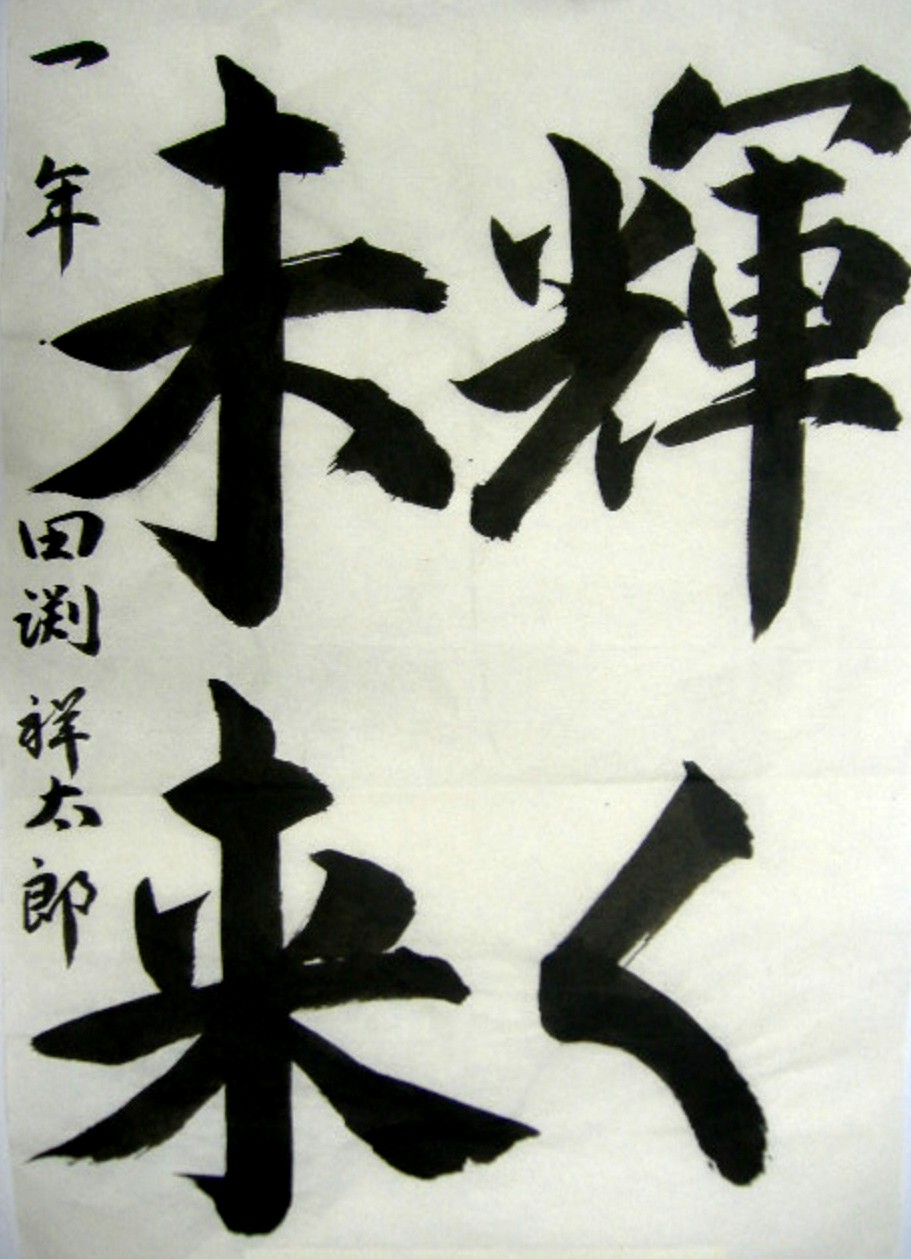 輝く
未来
一年 田渕祥太郎